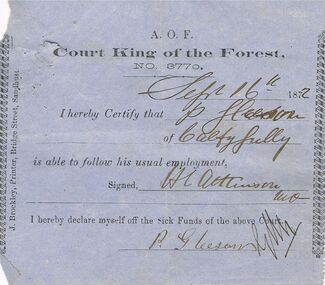 A. O. F.
Court King of the Forest,
NO. 3770.
Sept 16th 1872
I hereby Certify that P Gleeson
of Gully
is able to follow his usual employment,
Signed, H L Atkinson
I hereby declare myself off the Sick Funds of the above Court
P. Gleeson
J. Brockley, Printer, Bridge Street, Sandhurst